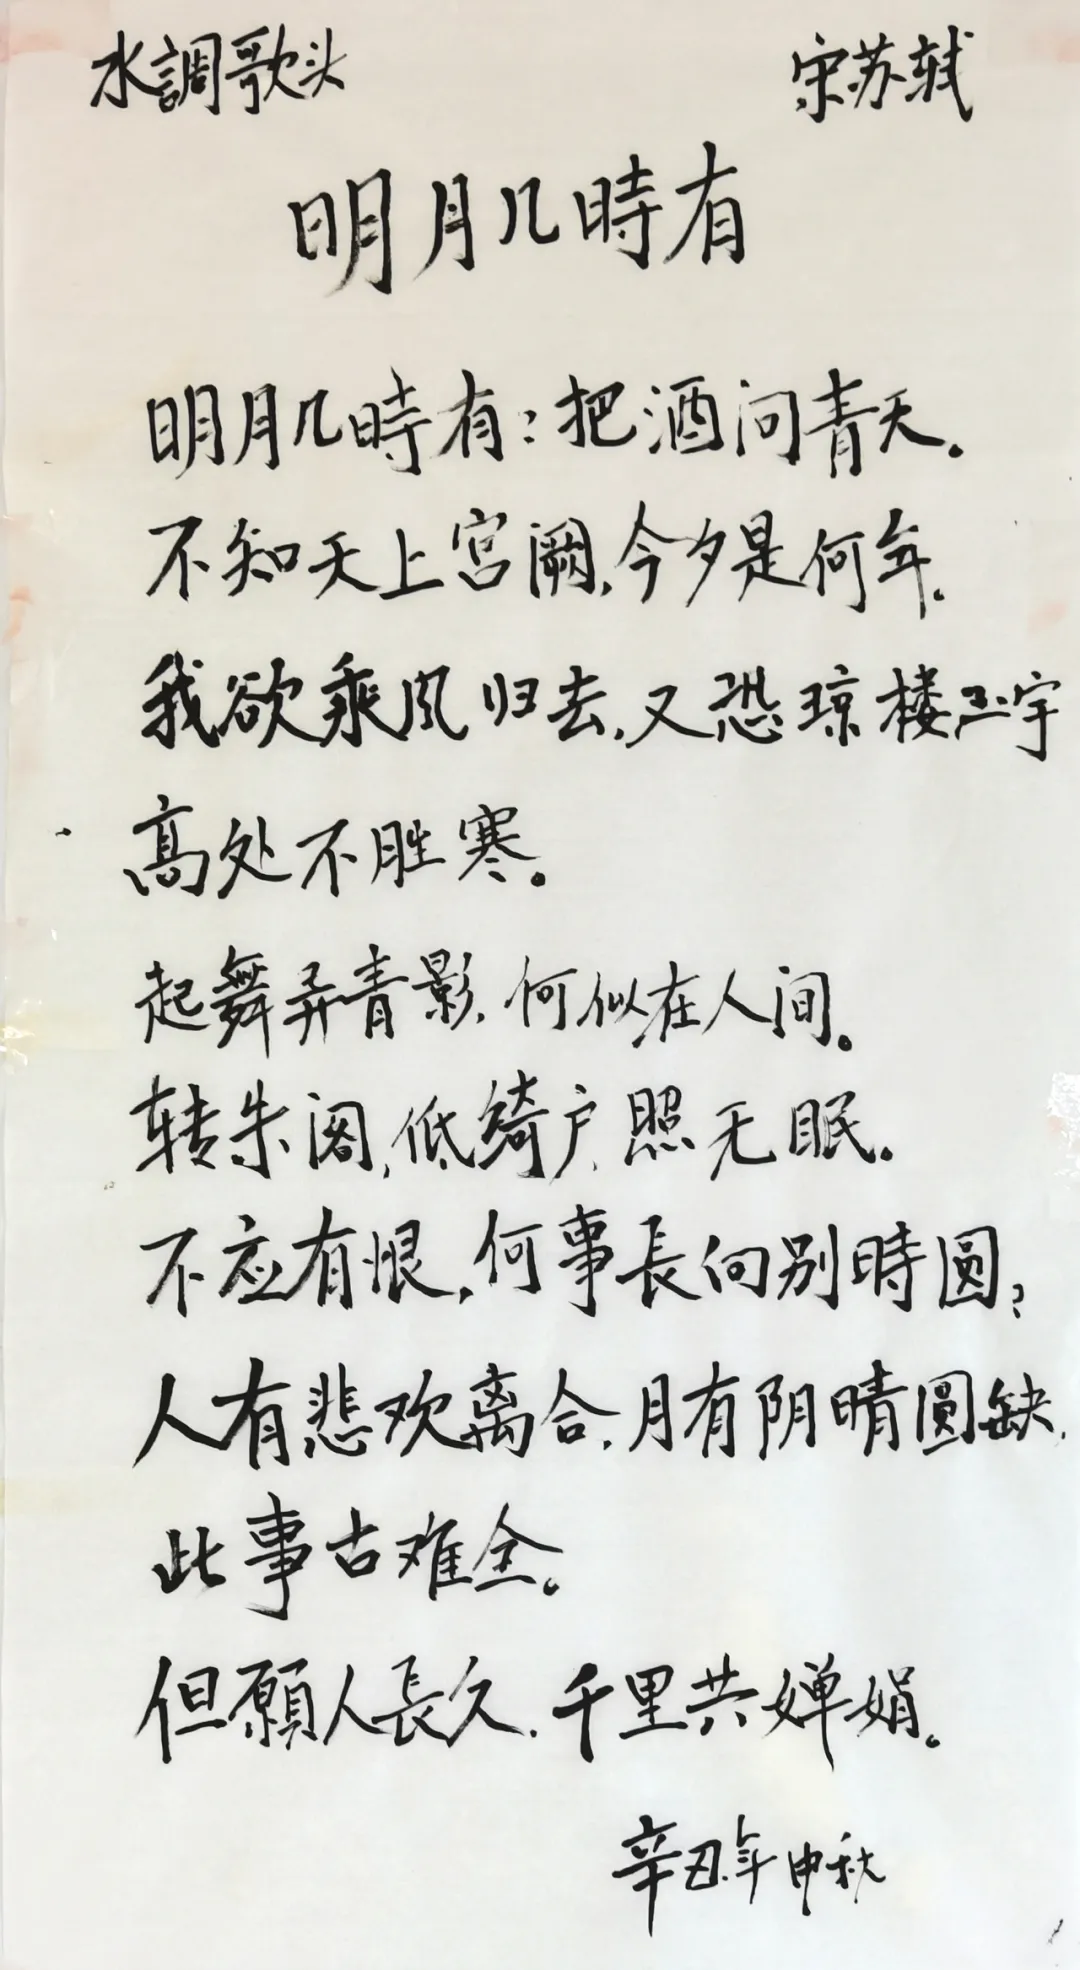 水調歌头 宋苏轼
明月几時有
明月几時有?把酒问青天。
不知天上宫阙,今夕是何年。
我欲乘风归去,又恐琼楼玉宇
高处不胜寒。
起舞弄青影,何似在人间。
转朱阁,低绮户,照无眠。
不应有恨,何事長向别時圆?
人有悲欢离合,月有阴晴圆缺,
此事古难全。
但願人長久,千里共婵娟。
辛丑年中秋